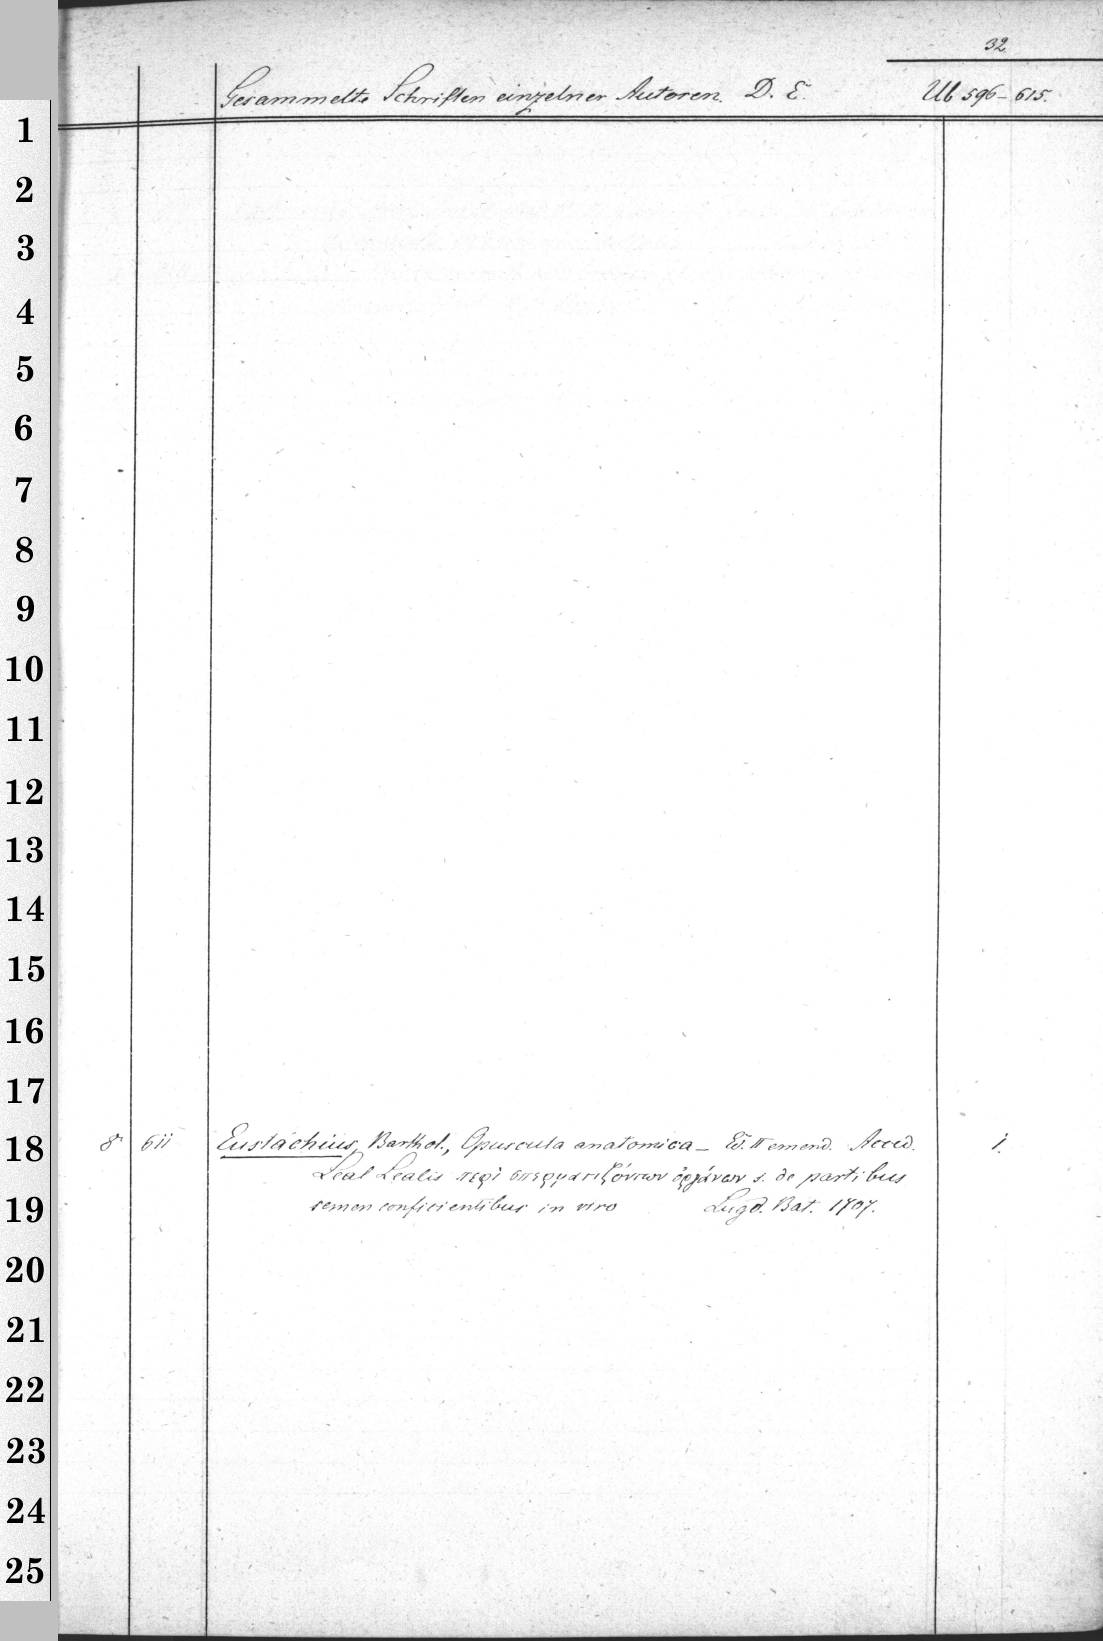 32
Gesammelte Schriften einzelner Autoren. D. E. Ub 596-615.
1
2
3
4
5
6
7
8
9
10
11
12
13
14
15
16
17
18
8° 611 Eustachius, Barthol., Opuscula anatomica – Ed. II emend. Accd. 1.
Leal Lealis περὶ σπερματιζόντων ὀργάνων s. de partibus
19
semen conficientibus in viro Lugd. Bat. 1707.
20
21
22
23
24
25